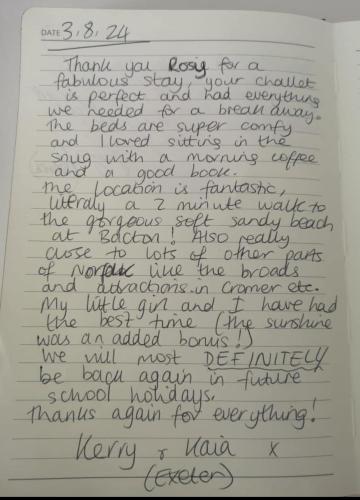 DATE 3.8.24
Thank you Rosy for a
fabulous stay, your challet
is perfect and had everything
we needed for a break away.
The beds are super comfy
and I loved sitting in the
snug with a morning coffee
and a good book.
The location is fantastic,
literaly a 2 minute walk to
the gorgeous soft sandy beach
at Bacton! Also really
close to lots of other parts
of Norfolk like the broads
and attractions in Cromer etc.
My little girl and I have had
the best time (the sunshine
was an added bonus!)
We will most DEFINITELY
be back again in future
school holidays.
Thanks again for everything!
Kerry & Kaia x
(Exeter)